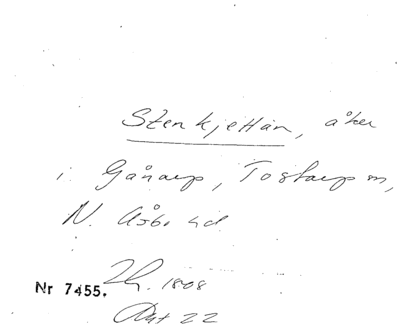 Stenkjettan, åker
i Gånarp, Tostarp sn,
N. Åsbo hd
Nr 7455. Lh. 1808
Akt 22